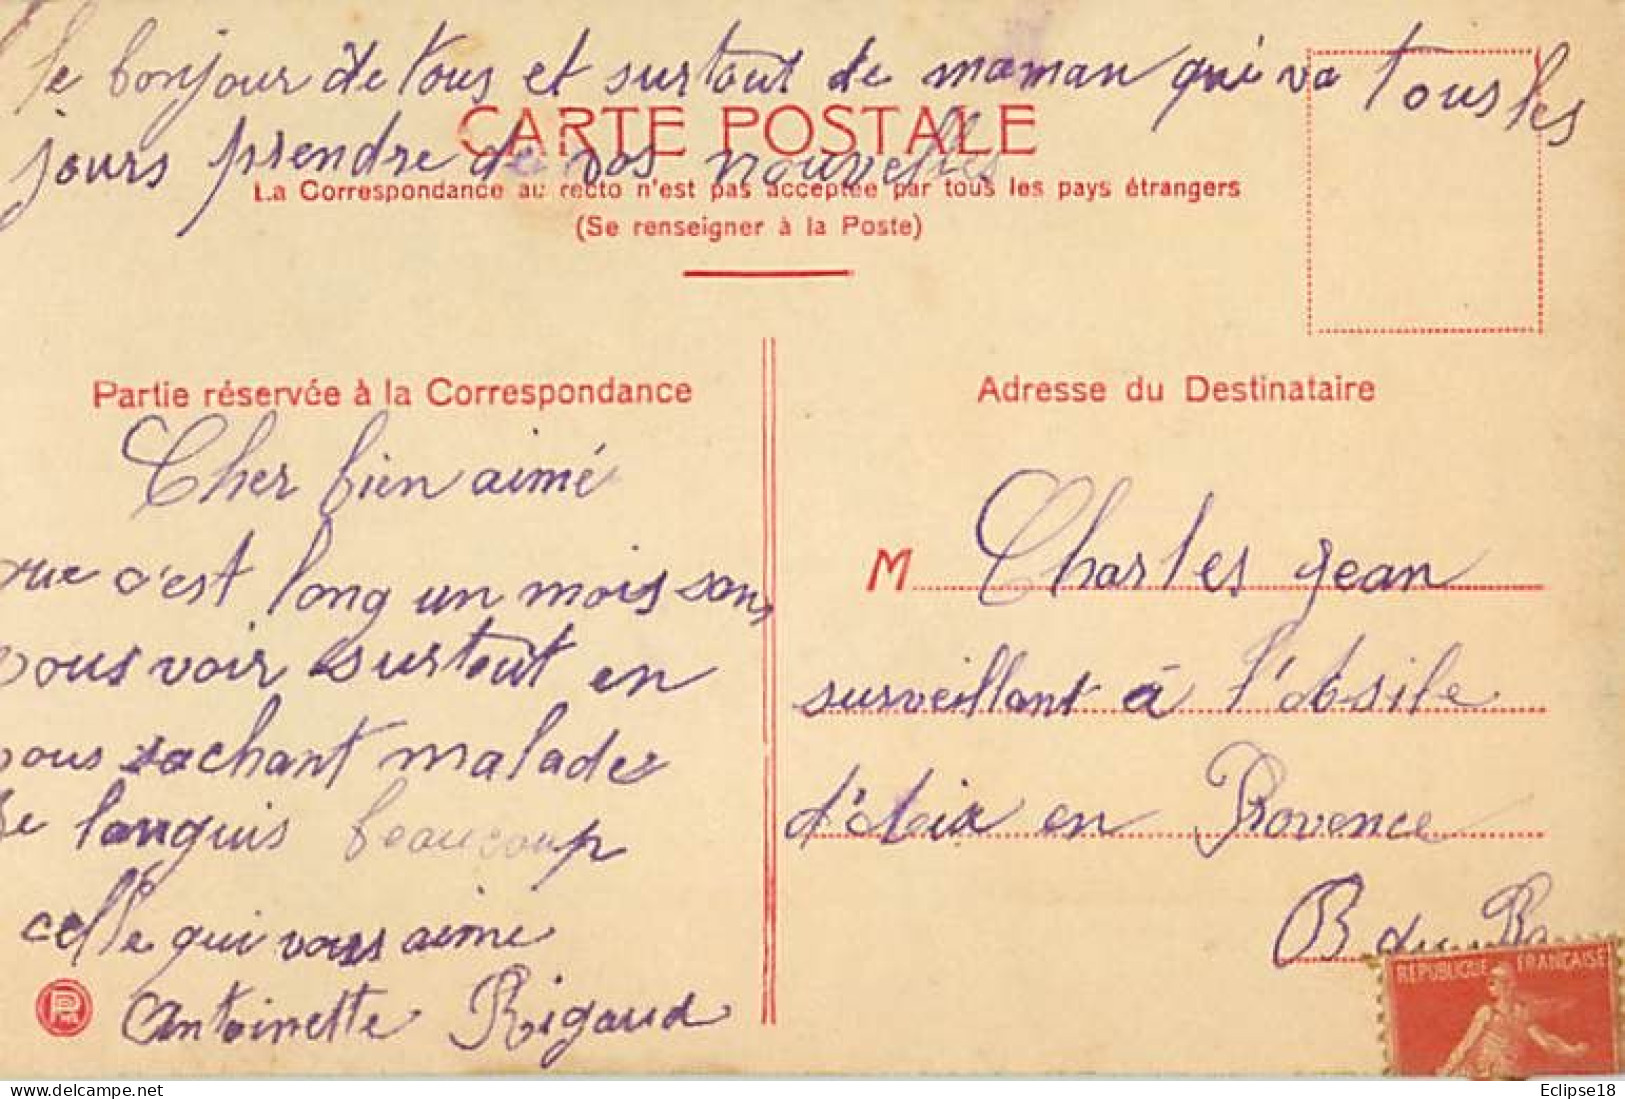 le bonjour de tous et surtout de maman qui va tous les
jours prendre de vos nouvelles
CARTE POSTALE
La Correspondance au recto n'est pas acceptée par tous les pays étrangers
(Se renseigner à la Poste)
Partie réservée à la Correspondance
Cher bien aimé
que c'est long un mois sans
vous voir surtout en
vous sachant malade
Je languis beaucoup
celle qui vous aime
Antoinette Rigaud
Adresse du Destinataire
M Charles Jean
surveillant à l'Asile
d'Aix en Provence
B du R
REPUBLIQUE FRANÇAISE
Eclipse18